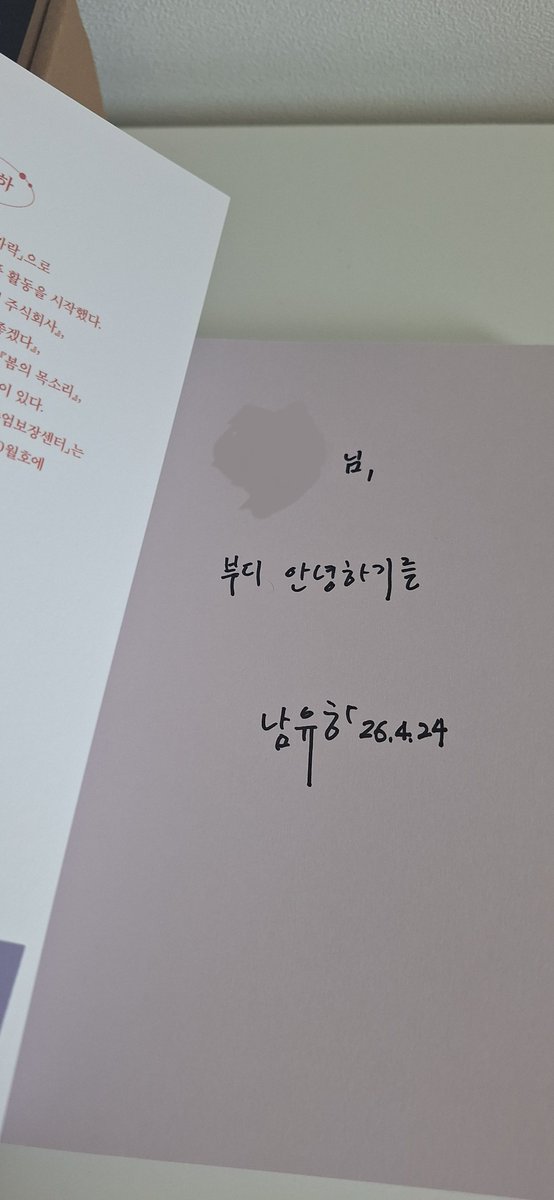 하
으로
활동을 시작했다.
주식회사』,
좋겠다』,
『봄의 목소리』,
이 있다.
보장센터」는
월호에
님,
부디 안녕하기를
남유하 26.4.24